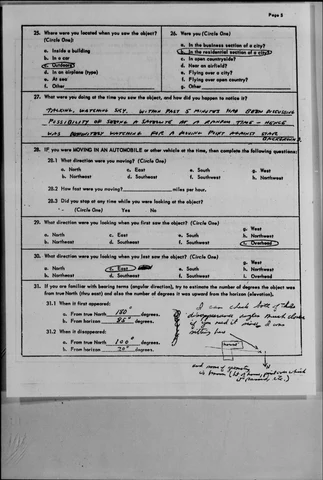 Page 2
25. Where were you located when you saw the object?
(Circle One):
a. Inside a building
b. In a car
c. Outdoors
d. In an airplane (type)
e. At sea
f. Other
26. Were you (Circle One)
a. In the business section of a city?
b. In the residential section of a city?
c. In open countryside?
d. Near an airfield?
e. Flying over a city?
f. Flying over open country?
g. Other
27. What were you doing at the time you saw the object, and how did you happen to notice it?
TALKING, WATCHING SKY. WITHIN PAST 5 MINUTES HAD BEEN DISCUSSING
POSSIBILITY OF SEEING A SATELLITE AT A RANDOM TIME - HENCE
WAS DEFINITELY WATCHING FOR A MOVING POINT AGAINST STAR
BACKGROUND.
28. IF you were MOVING IN AN AUTOMOBILE or other vehicle at the time, then complete the following questions:
28.1 What direction were you moving? (Circle One)
a. North
b. Northeast
c. East
d. Southeast
e. South
f. Southwest
g. West
h. Northwest
28.2 How fast were you moving? miles per hour.
28.3 Did you stop at any time while you were looking at the object?
(Circle One) Yes No
29. What direction were you looking when you first saw the object? (Circle One)
a. North
b. Northeast
c. East
d. Southeast
e. South
f. Southwest
g. West
h. Northwest
i. Overhead
30. What direction were you looking when you last saw the object? (Circle One)
a. North
b. Northeast
c. East
d. Southeast
e. South
f. Southwest
g. West
h. Northwest
i. Overhead
31. If you are familiar with bearing terms (angular direction), try to estimate the number of degrees the object was
from true North (thru east) and also the number of degrees it was upward from the horizon (elevation).
31.1 When it first appeared:
a. From true North 180° degrees.
b. From horizon 85° degrees.
31.2 When it disappeared:
a. From true North 100° degrees.
b. From horizon 20° degrees.
I can check both of these
disappearance angles much closer
if you need it since I was